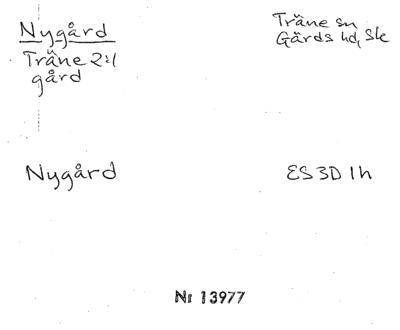 Nygård
Träne 2:1
gård
Träne sn
Gärds hd, Sk
Nygård
ES 3D 1h
Nr 13977